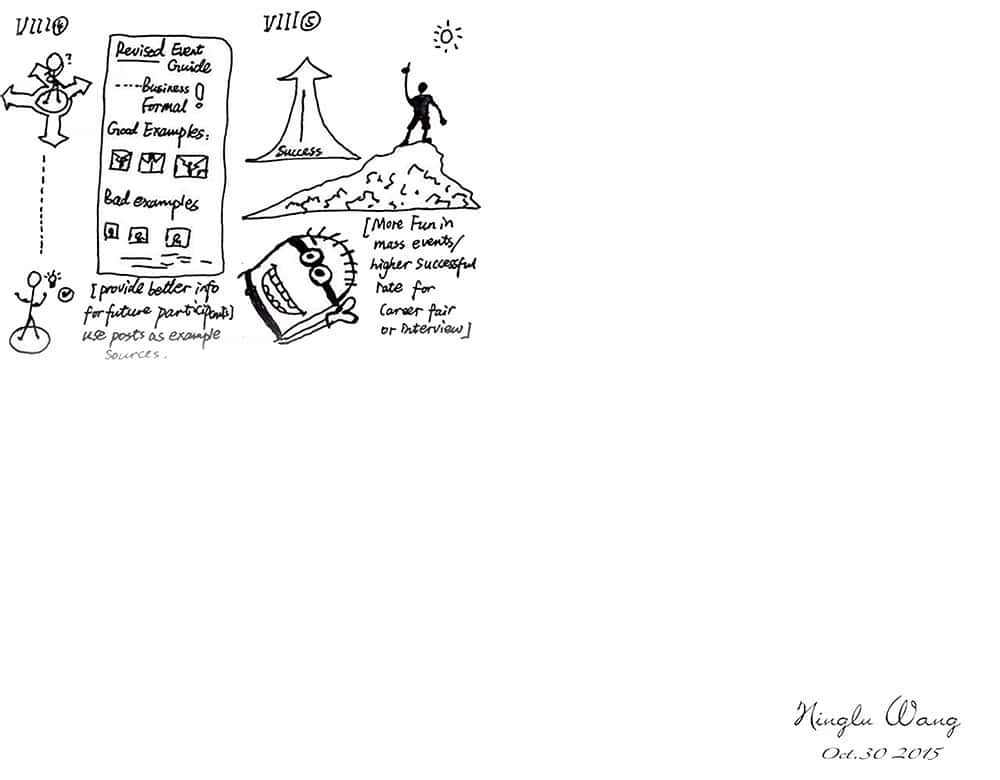 VIII④
Revised Event
Guide
----Business
Formal !
Good Examples:
Bad examples
[provide better info
for future participants]
use posts as example
Sources.
VIII⑤
Success
[More Fun in
mass events/
higher Successful
rate for
Career fair
or Interview]
?
Ninglu Wang
Oct.30 2015